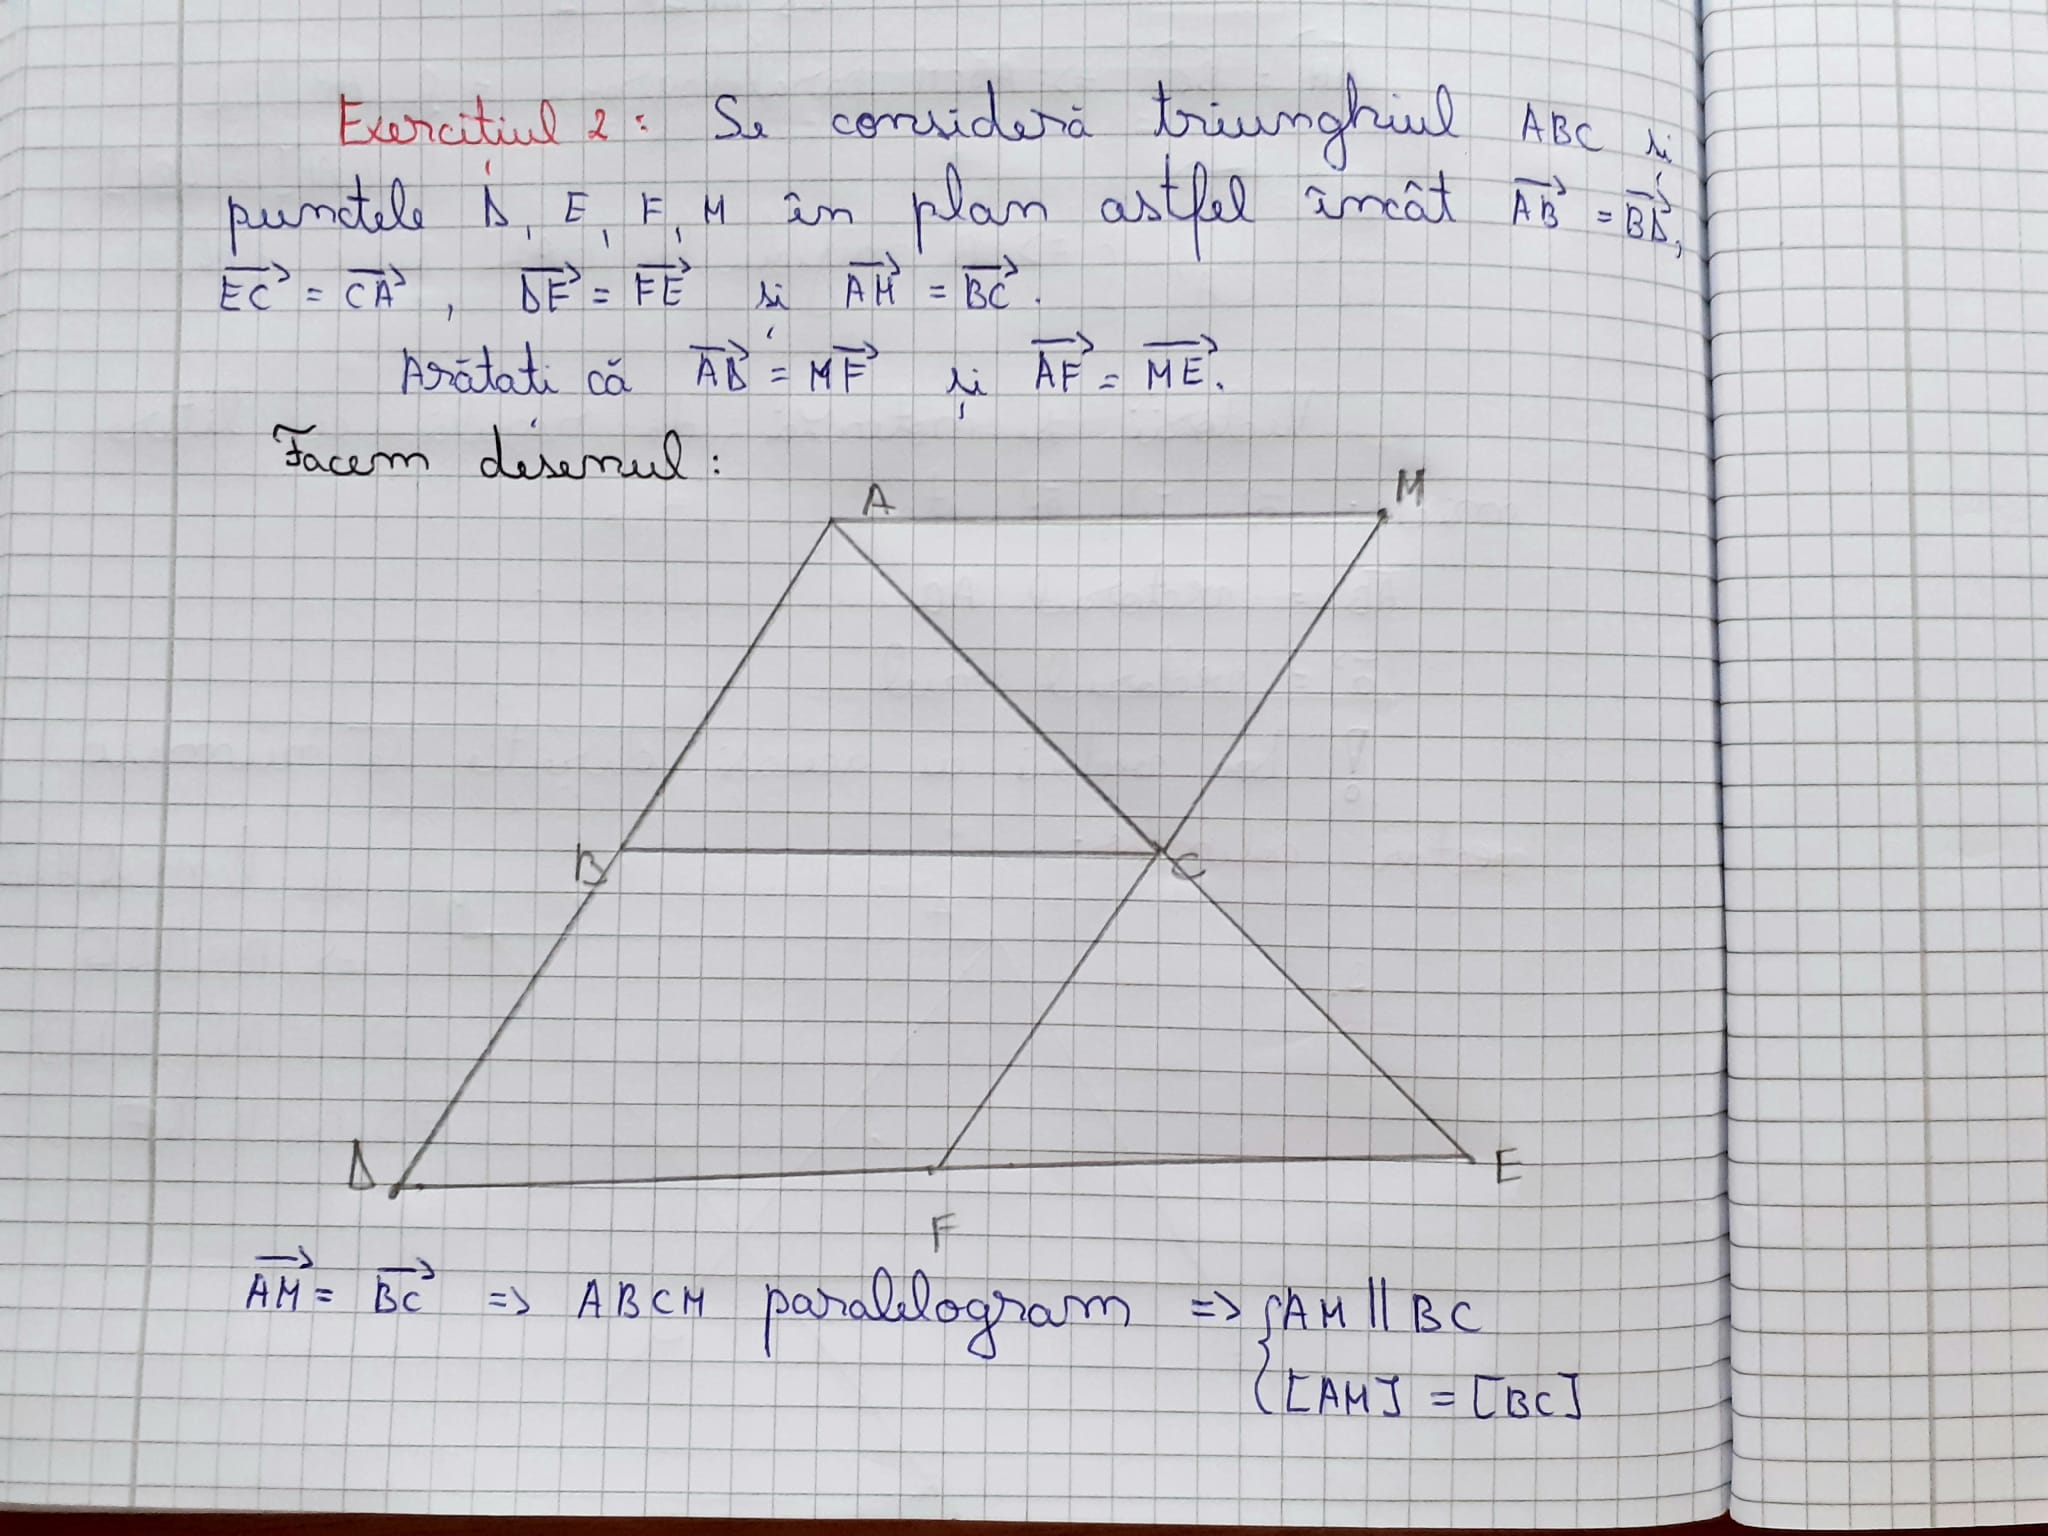 Exercițiul 2: Se consideră triunghiul ABC și
punctele D, E, F, M în plan astfel încât AB⃗ = BD⃗,
EC⃗ = CA⃗, DF⃗ = FE⃗ și AM⃗ = BC⃗.
Arătați că AD⃗ = MF⃗ și AF⃗ = ME⃗.
Facem desenul:
A M
B C
D E
F
AM⃗ = BC⃗ => ABCM paralelogram => { AM || BC
[AM] = [BC]